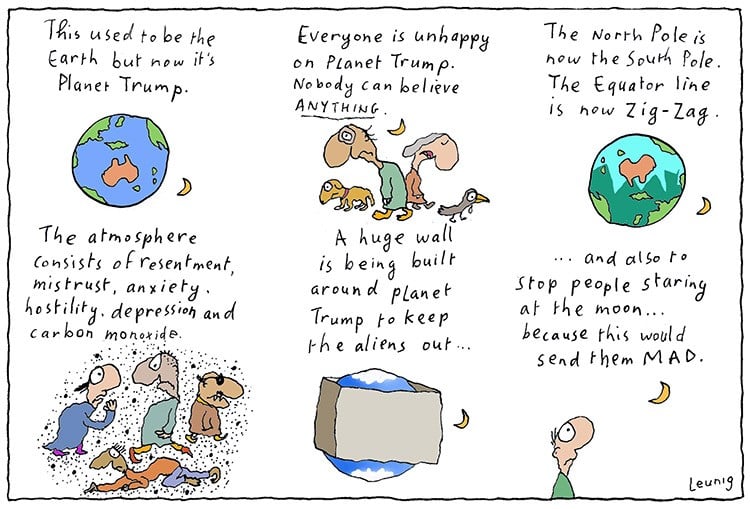 This used to be the
Earth but now it's
Planet Trump.
Everyone is unhappy
on Planet Trump.
Nobody can believe
ANYTHING.
The North Pole is
now the South Pole.
The Equator line
is now Zig-Zag.
The atmosphere
consists of resentment,
mistrust, anxiety.
hostility. depression and
carbon monoxide.
A huge wall
is being built
around planet
Trump to keep
the aliens out...
... and also to
stop people staring
at the moon...
because this would
send them MAD.
Leunig